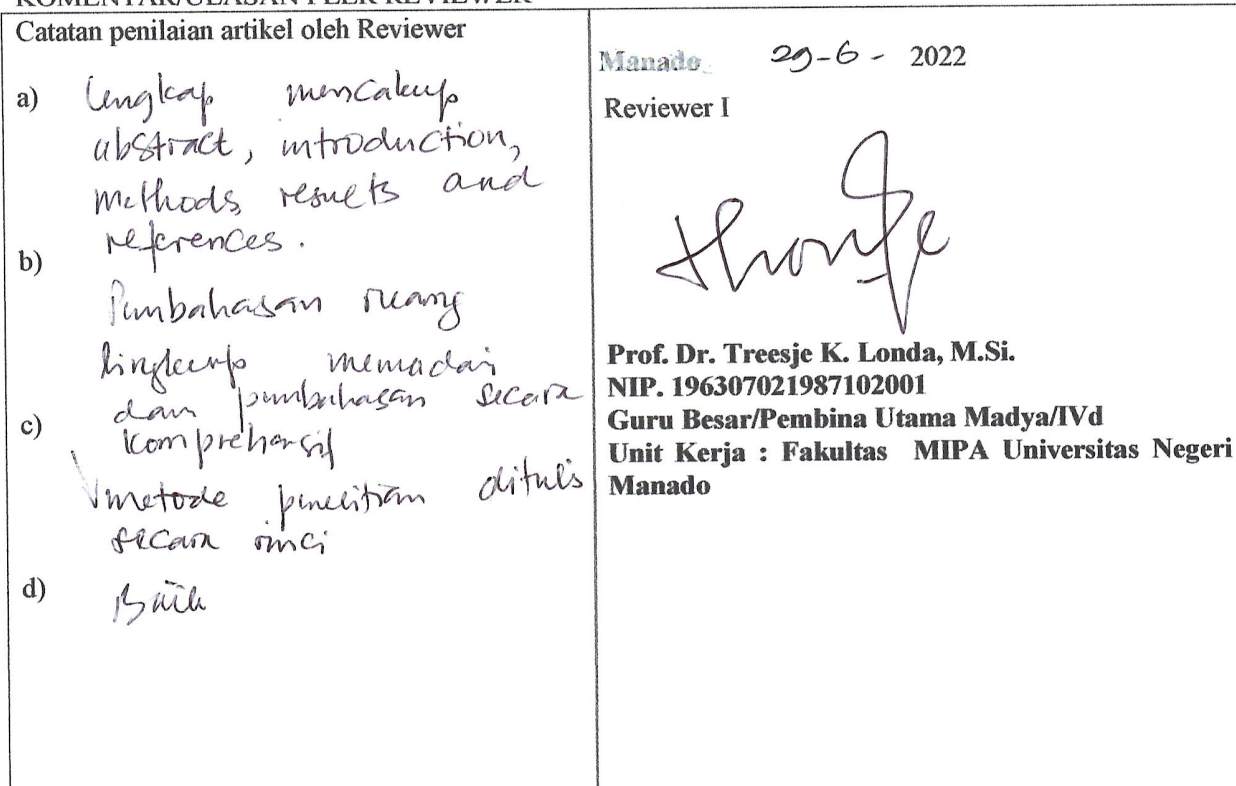 KOMENTAR/ULASAN PEER REVIEWER
Catatan penilaian artikel oleh Reviewer
a) Lengkap mencakup
abstract, introduction,
methods, results and
references.
b)
Pembahasan ruang
lingkup memadai
dan pembahasan secara
c) komprehensif
metode penelitian ditulis
secara rinci
d) Baik
Manado 29-6- 2022
Reviewer I
Prof. Dr. Treesje K. Londa, M.Si.
NIP. 196307021987102001
Guru Besar/Pembina Utama Madya/IVd
Unit Kerja : Fakultas MIPA Universitas Negeri
Manado